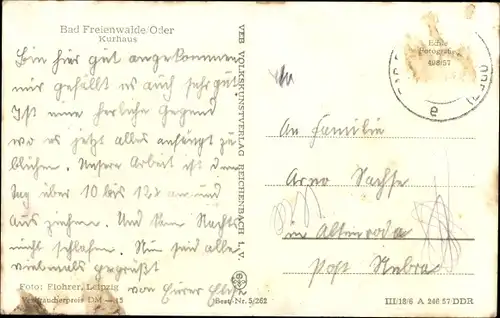 Bad Freienwalde/Oder
Kurhaus
Bin hier gut angekommen
mir gefällt es auch sehr gut
Ist eine herliche Gegend
wo es jetzt alles anfängt zu
blühen. Unsere Arbeit ist den
Tag über 10 bis 12 x an und
Aus ziehen. Und kann Nachts
nicht schlafen. Nun seid alle
vielmals gegrüßt
von Eurer
Foto: Flohrer, Leipzig
Verbraucherpreis DM -,15
VEB VOLKSKUNSTVERLAG REICHENBACH I. V.
Best.-Nr. 5/262
Echte
Fotografie
498/57
e
An Familie
Arno Sachse
in Altenroda
Post Nebra
III/18/6 A 246 57 DDR